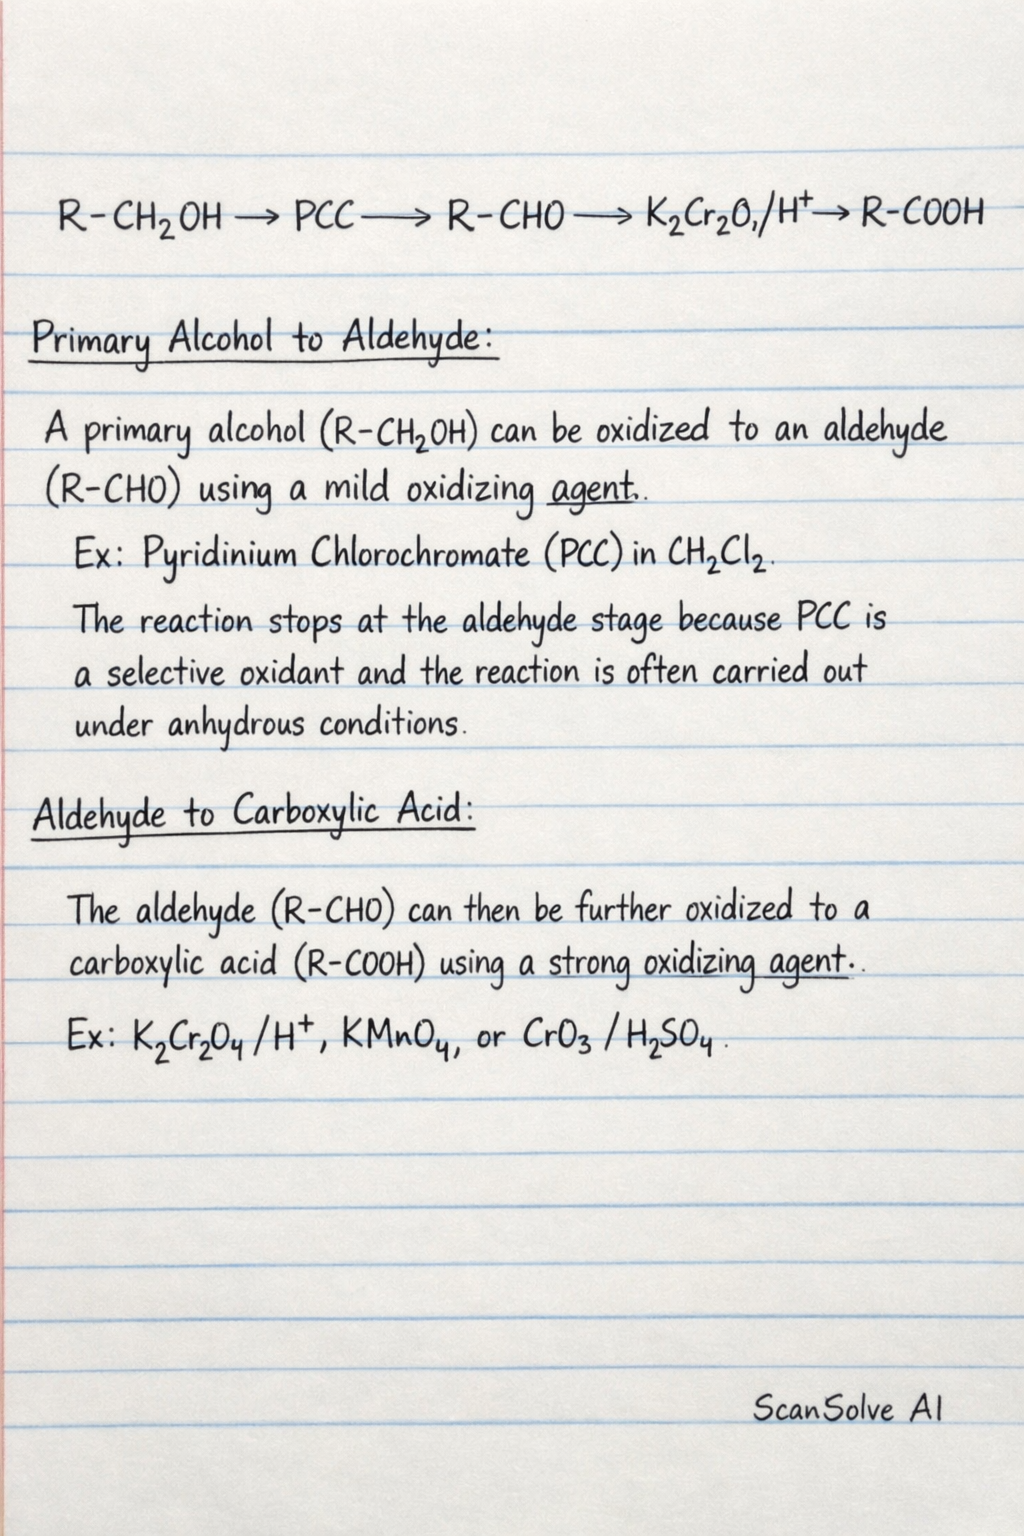 R-CH₂OH → PCC → R-CHO → K₂Cr₂O,/H⁺→ R-COOH
Primary Alcohol to Aldehyde:
A primary alcohol (R-CH₂OH) can be oxidized to an aldehyde
(R-CHO) using a mild oxidizing agent..
Ex: Pyridinium Chlorochromate (PCC) in CH₂Cl₂.
The reaction stops at the aldehyde stage because PCC is
a selective oxidant and the reaction is often carried out
under anhydrous conditions.
Aldehyde to Carboxylic Acid:
The aldehyde (R-CHO) can then be further oxidized to a
carboxylic acid (R-COOH) using a strong oxidizing agent..
Ex: K₂Cr₂O₄/H⁺, KMnO₄, or CrO₃/H₂SO₄.
ScanSolve AI